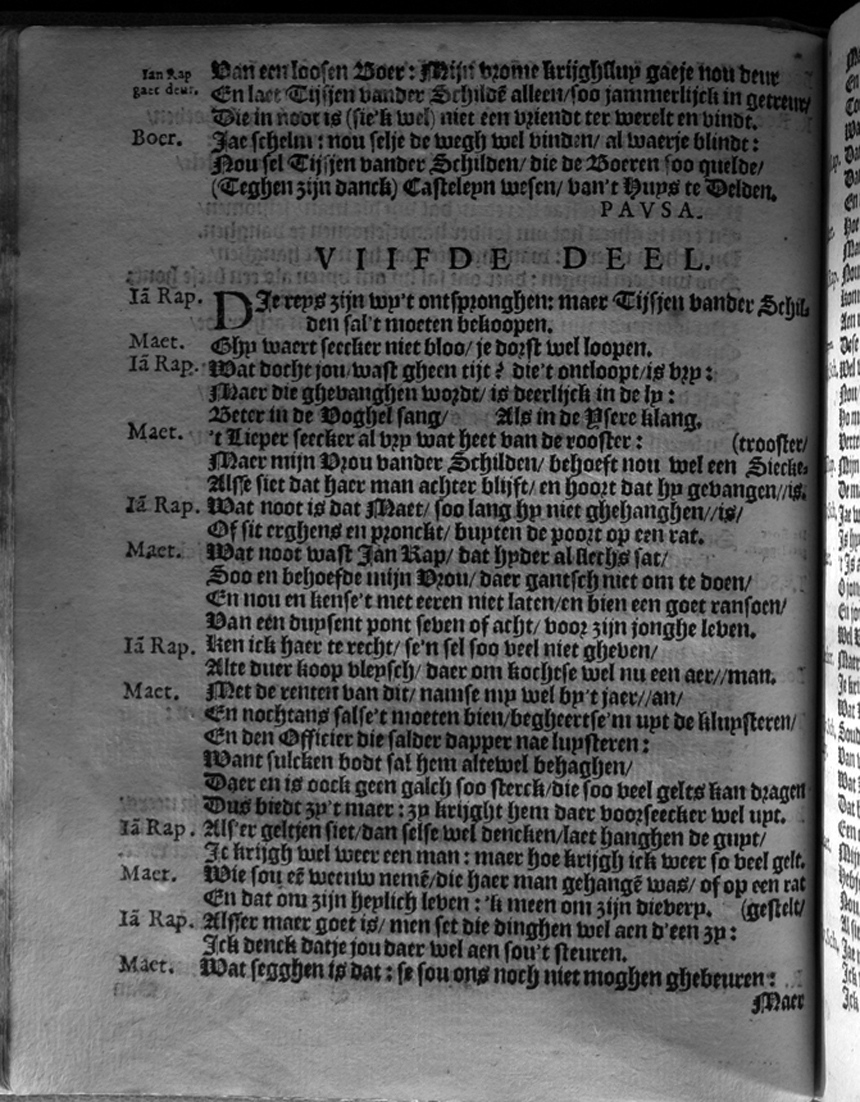 Ian Rap Van een loosen Boer: Mijn vrome krijghsluy gaeje nou deur
gaet deur. En laet Tijsjen vander Schildē alleen/soo jammerlijck in getreur/
Die in noot is (sie'k wel) niet een vriendt ter werelt en vindt.
Boer. Jae schelm: nou selje de wegh wel vinden/ al waerje blindt:
Nou sel Tijsjen vander Schilden/ die de Boeren soo quelde/
(Teghen zijn danck) Casteleyn wesen/ van't Huys te Delden.
PAVSA.
VIIFDE DEEL.
Iā Rap. DIe reys zijn wy't ontspronghen: maer Tijsjen vander Schil-
den sal't moeten bekoopen.
Maet. Ghy waert seecker niet bloo/ je dorst wel loopen.
Iā Rap. Wat docht jou/wast gheen tijt? die't ontloopt/is vry:
Maer die ghevanghen wordt/ is deerlijck in de ly:
Beter in de Voghel sang/ Als in de Ysere klang.
Maet. 't Lieper seecker al vry wat heet van de rooster: (trooster/
Maer mijn Vrou vander Schilden/ behoeft nou wel een Siecke-
Alsse siet dat haer man achter blijft/ en hoort dat hy gevangen//is.
Iā Rap. Wat noot is dat Maet/ soo lang hy niet ghehanghen//is/
Of sit erghens en pronckt/ buyten de poort op een rat.
Maet. Wat noot wast Jan Rap/ dat hyder al slechs sat/
Soo en behoefde mijn Vrou/ daer gantsch niet om te doen/
En nou en kense't met eeren niet laten/en bien een goet ransoen/
Van een duysent pont seven of acht/ voor zijn jonghe leven.
Iā Rap. Ken ick haer te recht/ se'n sel soo veel niet gheven/
Alte duer koop vleysch/ daer om kochtse wel nu een aer//man.
Maet. Met de renten van dit/ namse my wel by't jaer//an/
En nochtans salse't moeten bien/begheertse'm uyt de kluysteren/
En den Officier die salder dapper nae luysteren:
Want sulcken bodt sal hem altewel behaghen/
Daer en is oock geen galch soo sterck/die soo veel gelts kan dragen
Dus biedt zy't maer: zy krijght hem daer voorseecker wel uyt.
Iā Rap. Als'er geltjen siet/dan selse wel dencken/laet hanghen de guyt/
Ic krijgh wel weer een man: maer hoe krijgh ick weer so veel gelt.
Maet. Wie sou eē weeuw nemē/die haer man gehangē was/ of op een rat
En dat om zijn heylich leven: 'k meen om zijn dievery. (gestelt/
Iā Rap. Alsser maer goet is/ men set die dinghen wel aen d'een zy:
Ick denck datje jou daer wel aen sou't steuren.
Maet. Wat segghen is dat: se sou ons noch niet moghen ghebeuren:
Maer